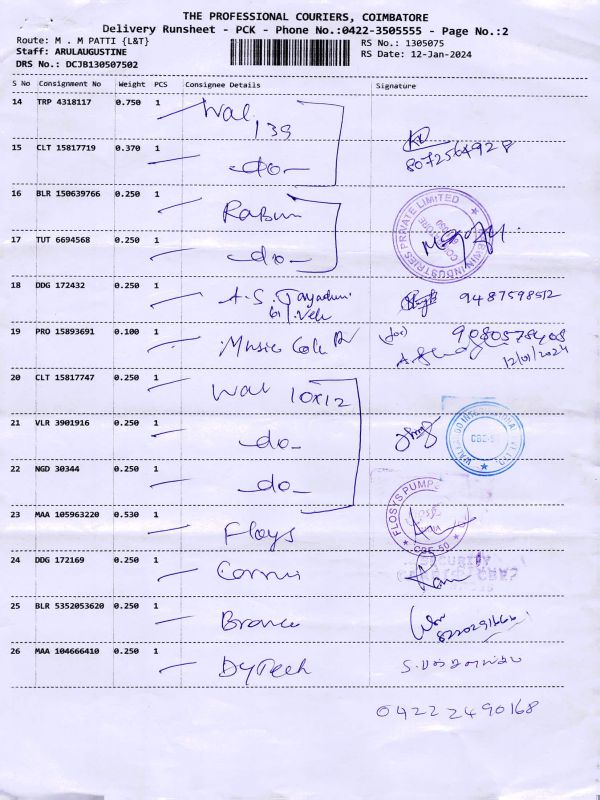 THE PROFESSIONAL COURIERS, COIMBATORE
Delivery Runsheet - PCK - Phone No.:0422-3505555 - Page No.:2
Route: M . M PATTI {L&T}
RS No.: 1305075
Staff: ARULAUGUSTINE
RS Date: 12-Jan-2024
DRS No.: DCJB130507502
S No Consignment No Weight PCS Consignee Details Signature
14 TRP 4318117 0.750 1 Wal 139
15 CLT 15817719 0.370 1 -do- 8072564928
16 BLR 150639766 0.250 1
17 TUT 6694568 0.250 1 -do-
INDUSTRIES PRIVATE LIMITED
18 DDG 172432 0.250 1 A.S. 9487598512
19 PRO 15893691 0.100 1 Music (for)
12/01/2024
20 CLT 15817747 0.250 1 Wal 10x12
21 VLR 3901916 0.250 1 -do-
22 NGD 30344 0.250 1 -do-
FLOSYS PUMPS
CBE-50
23 MAA 105963220 0.530 1 Floys
24 DDG 172169 0.250 1
25 BLR 5352053620 0.250 1
26 MAA 104666410 0.250 1 DyTech
04222490168